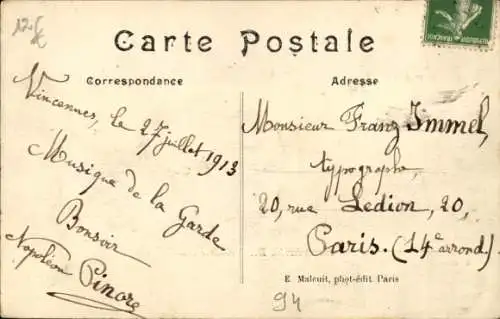 12.5
€
Carte Postale
Correspondance
Adresse
Vincennes, le 27 juillet 1913
Musique de la Garde
Bonsoir
Napoléon Pinore
Monsieur Franz Immel,
typographe,
20, rue Ledion, 20,
Paris. (14e arrond.)
E. Malcuit, phot-édit. Paris
94